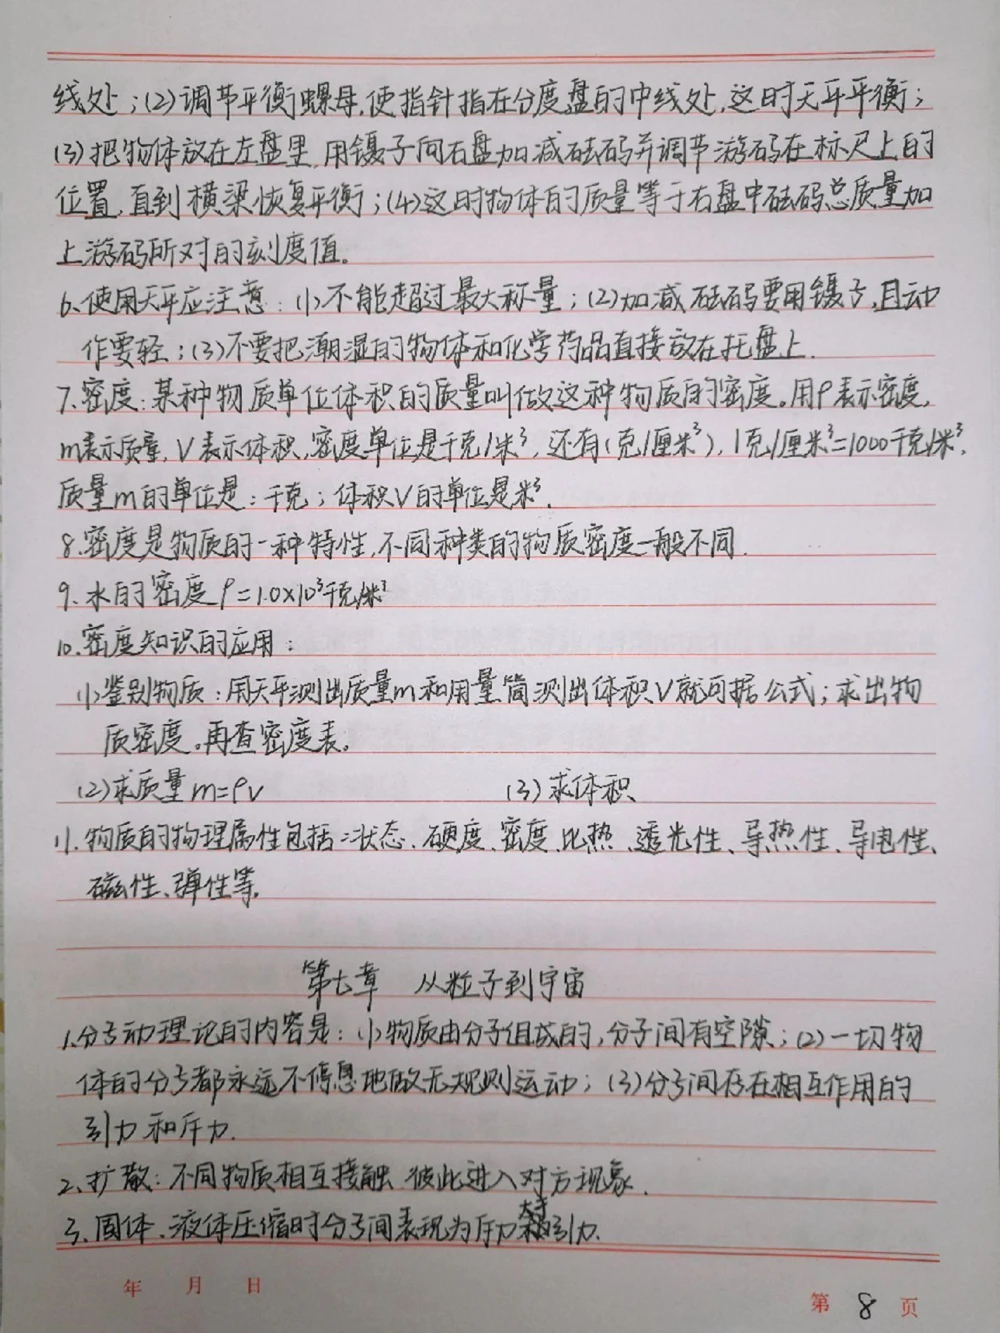 线处；(2)调节平衡螺母，使指针指在分度盘的中线处，这时天平平衡；
(3)把物体放在左盘里，用镊子向右盘加减砝码并调节游码在标尺上的
位置，直到横梁恢复平衡；(4)这时物体的质量等于右盘中砝码总质量加
上游码所对的刻度值。
6、使用天平应注意：(1)不能超过最大称量；(2)加减砝码要用镊子，且动
作要轻；(3)不要把潮湿的物体和化学药品直接放在托盘上.
7.密度：某种物质单位体积的质量叫做这种物质的密度。用ρ表示密度，
m表示质量，V表示体积，密度单位是千克/米³，还有(克/厘米³)，1克/厘米³=1000千克/米³.
质量m的单位是：千克；体积V的单位是米³.
8.密度是物质的一种特性，不同种类的物质密度一般不同.
9.水的密度ρ=1.0×10³千克/米³
10.密度知识的应用：
(1)鉴别物质：用天平测出质量m和用量筒测出体积V就可据公式；求出物
质密度。再查密度表。
(2)求质量m=ρv (3)求体积
11.物质的物理属性包括：状态、硬度、密度、比热、透光性、导热性、导电性、
磁性、弹性等.
第七章 从粒子到宇宙
1.分子动理论的内容是：(1)物质由分子组成的，分子间有空隙；(2)一切物
体的分子都永远不停息地做无规则运动；(3)分子间存在相互作用的
引力和斥力.
2、扩散：不同物质相互接触 彼此进入对方现象.
3、固体、液体压缩时分子间表现为斥力大于引力.
年 月 日
第 8 页